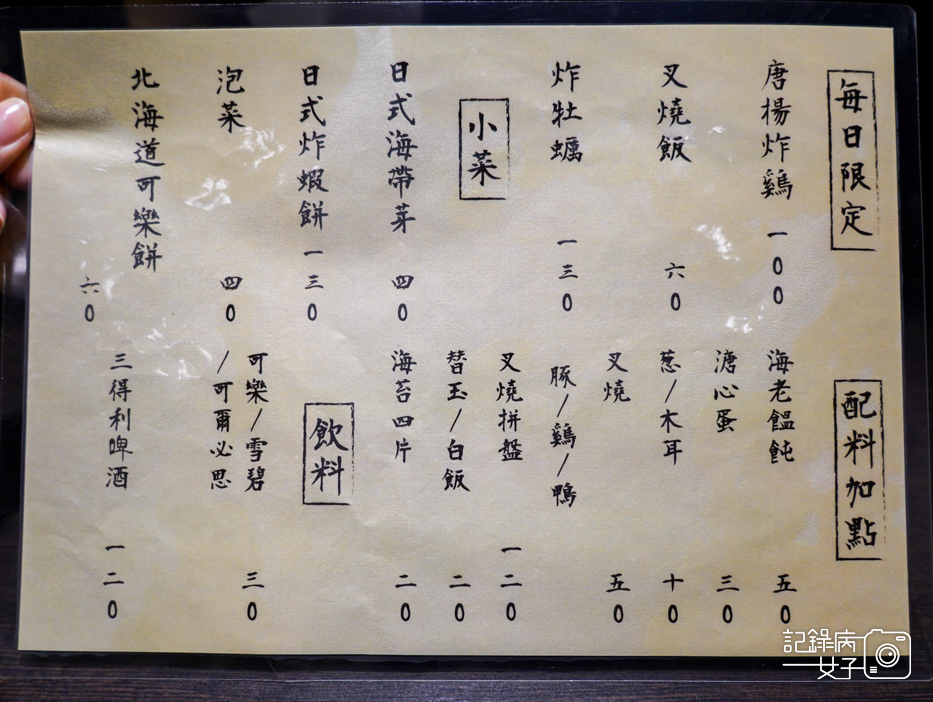 每日限定
唐揚炸鷄 一00
叉燒飯 六0
炸牡蠣 一三0
小菜
日式海帶芽 四0
日式炸蝦餅 一三0
泡菜 四0
北海道可樂餅 六0
配料加點
海老餛飩 五0
溏心蛋 三0
蔥/木耳 十0
叉燒 五0
豚/鷄/鴨
叉燒拼盤 一二0
替玉/白飯 二0
海苔四片 二0
飲料
可樂/雪碧 三0
/可爾必思
三得利啤酒 一二0
記錄病
女子